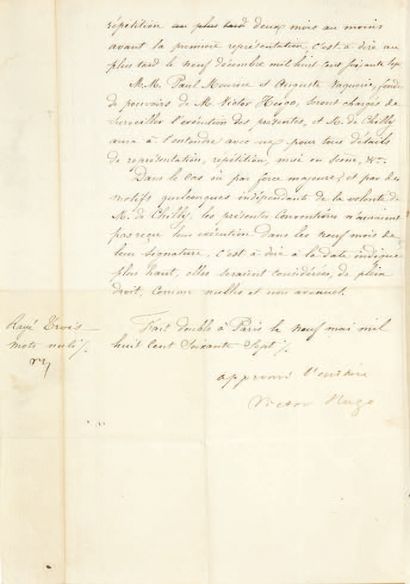 répétition au plus tard deux mois au moins
avant la première représentation, c'est à dire au
plus tard le neuf décembre mil huit cent soixante sept
M.M. Paul Meurice et Auguste Vaquerie, fondés
de pouvoirs de M. Victor Hugo, seront chargés de
surveiller l'exécution des présentes, et M. de Chilly
aura à s'entendre avec eux pour tous détails
de représentation, répétition, mise en scène, &c.
Dans le cas où par force majeure, et par des
motifs quelconques indépendants de la volonté de
M. de Chilly, les présentes Conventions n'auraient
pas reçu leur exécution dans les neuf mois de
leur signature, c'est à dire à la date indiquée
plus haut, elles seraient considérées, de plein
droit, comme nulles et non avenues.
Rayé Trois
mots nuls
Fait double à Paris le neuf mai mil
huit cent soixante sept
approuvé l'écriture
Victor Hugo